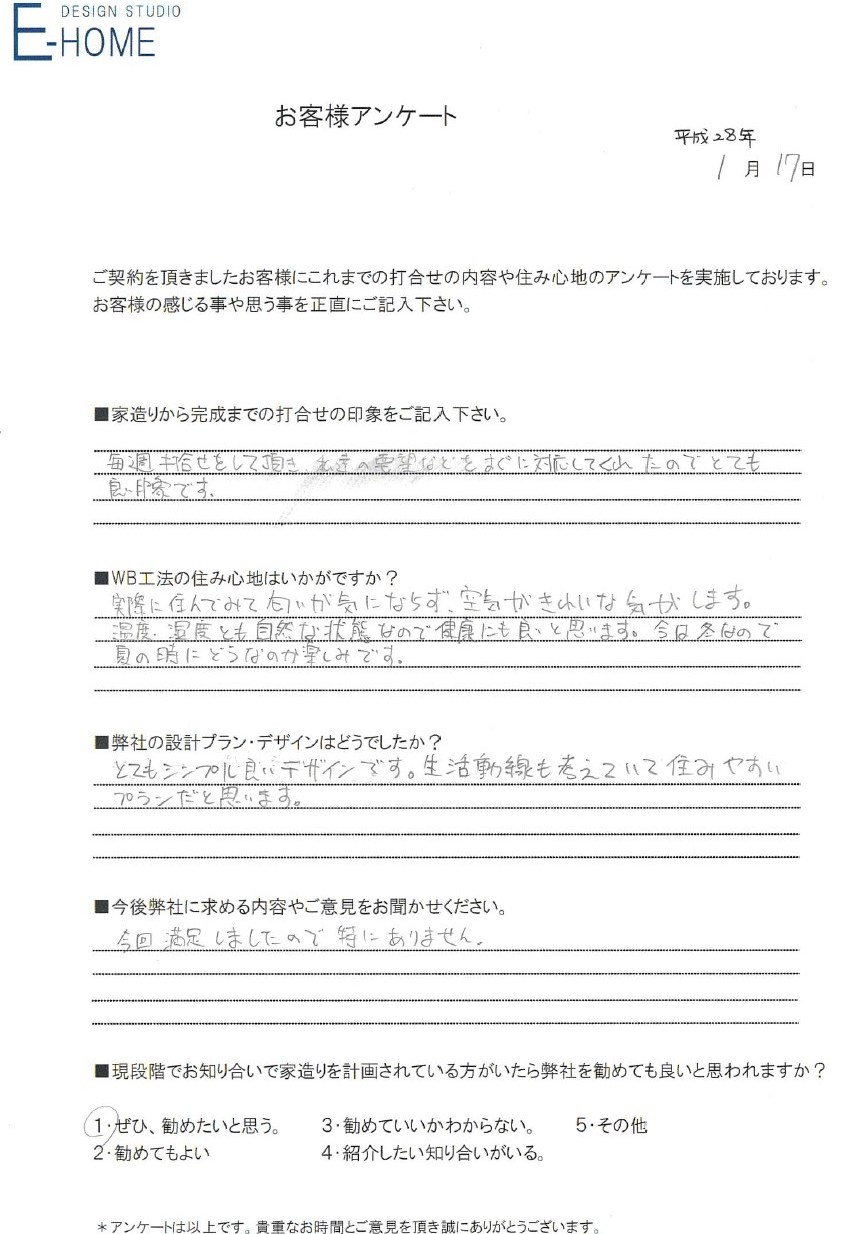 DESIGN STUDIO
E-HOME
お客様アンケート
平成28年
1月17日
ご契約を頂きましたお客様にこれまでの打合せの内容や住み心地のアンケートを実施しております。
お客様の感じる事や思う事を正直にご記入下さい。
■家造りから完成までの打合せの印象をご記入下さい。
毎週打合せをして頂き、私達の要望などをすぐに対応してくれたのでとても
良い印象です。
■WB工法の住み心地はいかがですか?
実際に住んでみて匂いが気にならず、空気がきれいな気がします。
温度・湿度とも自然な状態なので健康にも良いと思います。今は冬なので
夏の時にどうなのか楽しみです。
■弊社の設計プラン・デザインはどうでしたか?
とてもシンプル良いデザインです。生活動線も考えていて住みやすい
プランだと思います。
■今後弊社に求める内容やご意見をお聞かせください。
今回満足しましたので特にありません。
■現段階でお知り合いで家造りを計画されている方がいたら弊社を勧めても良いと思われますか?
1・ぜひ、勧めたいと思う。 3・勧めていいかわからない。 5・その他
2・勧めてもよい 4・紹介したい知り合いがいる。
*アンケートは以上です。貴重なお時間とご意見を頂き誠にありがとうございます。